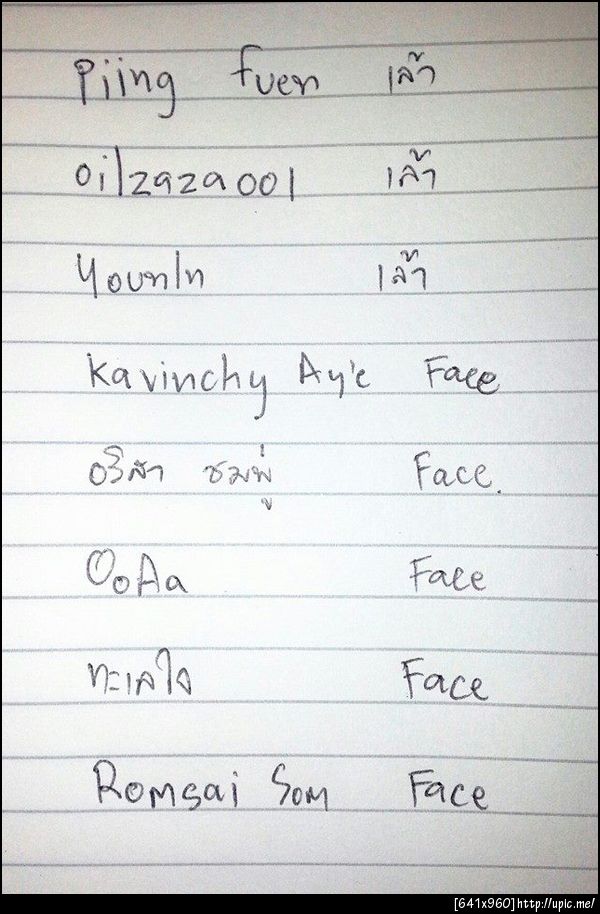 Piing fuen เล้า
oilzaza001 เล้า
Younln เล้า
Kavinchy Ay'e Face
อริสา ชมพู่ Face.
OoAa Face
ทะเลใจ Face
Romsai Som Face
[641x960]http://upic.me/